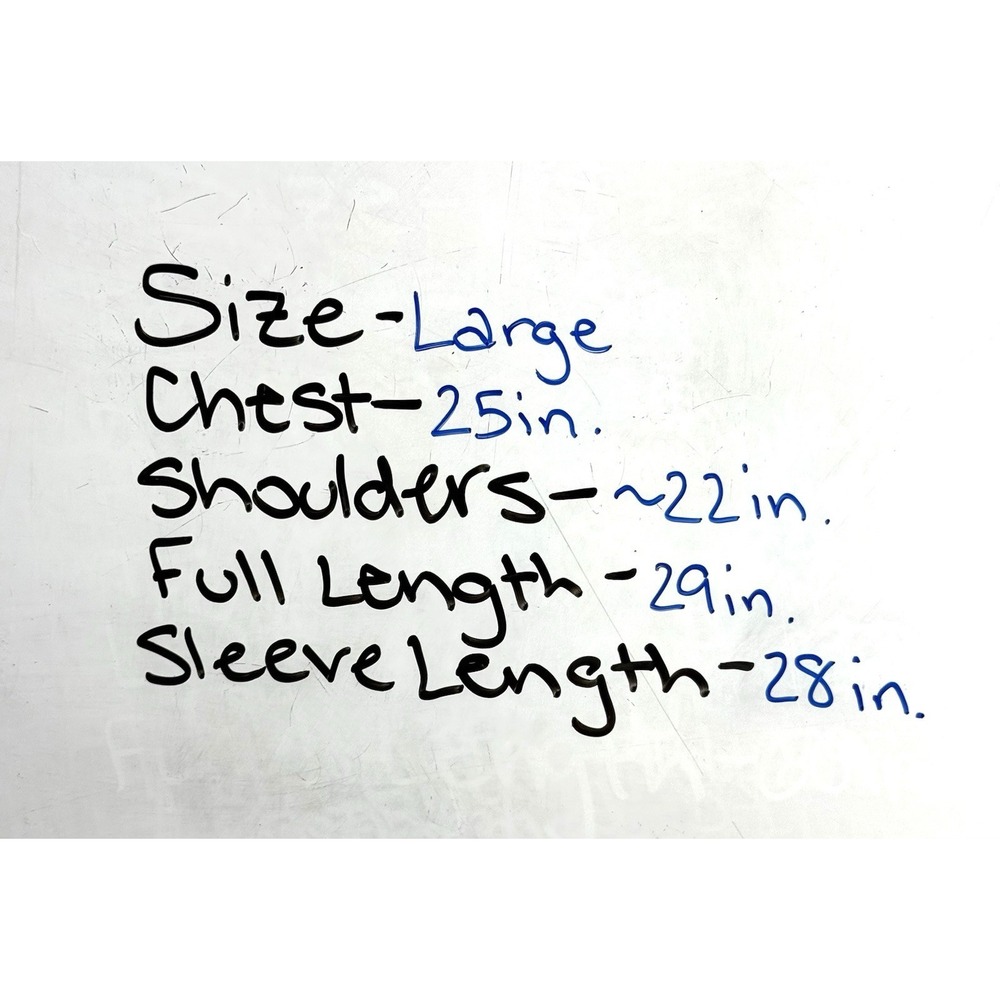 Size - Large
Chest - 25in.
Shoulders - ~22in.
Full Length - 29in.
Sleeve Length - 28in.